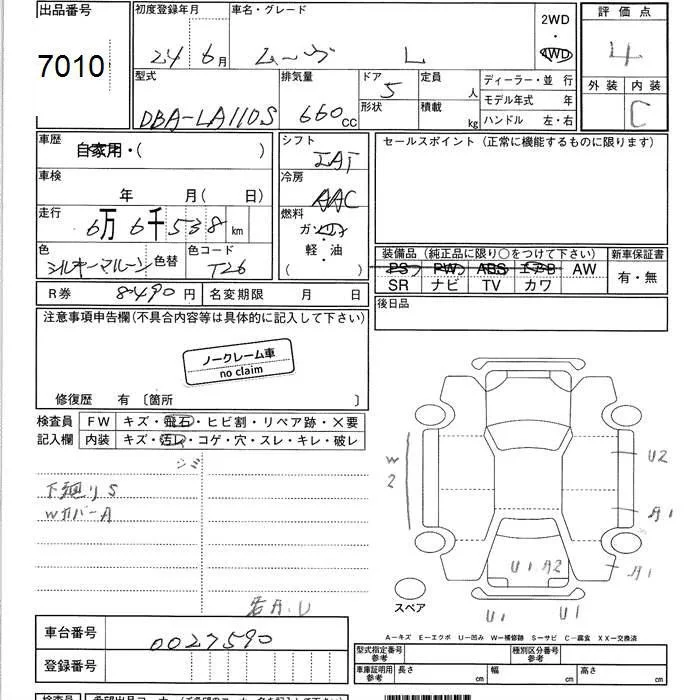 出品番号
7010
初度登録年月
24 6月
車名・グレード
ムーヴ L
2WD
・
4WD
評価点
4
外装 内装
C
型式
DBA-LA110S
排気量
660cc
ドア
5
形状
定員
人
積載
kg
ディーラー・並行
モデル年式 年
ハンドル 左・右
車歴
自家用・( )
車検
年 月( 日)
走行
6万6千538km
色
シルキーマルーン
色替
色コード
T26
シフト
IAT
冷房
AAC
燃料
ガソリン
軽・油
( )
セールスポイント(正常に機能するものに限ります)
装備品(純正品に限り○をつけて下さい)
PS PW ABS エアB AW
SR ナビ TV カワ
新車保証書
有・無
R券 8490円
名変期限 月 日
後日品
注意事項申告欄(不具合内容等は具体的に記入して下さい)
ノークレーム車
no claim
修復歴 有〔箇所 〕
検査員
記入欄
FW キズ・飛石・ヒビ割・リペア跡・×要
内装 キズ・汚レ・コゲ・穴・スレ・キレ・破レ
シジ
下廻りS
WカバーA
若A.U
W2
U2
A1
A1
U1 A2
U1
U1
スペア
A−キズ E−エクボ U−凹み W−補修跡 S−サビ C−腐食 XX−交換済
車台番号
0027590
登録番号
型式指定番号
参考
種別区分番号
参考
車庫証明用
参考
長さ cm
幅 cm
高さ cm
検査員
希望出品コーナー(ご希望のコーナー名を記入下さい)